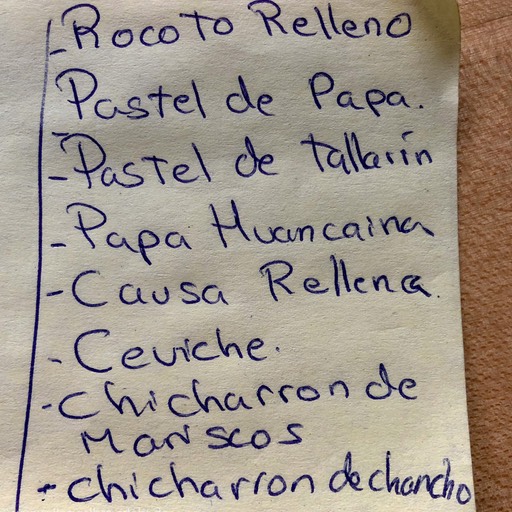 - Rocoto Relleno
Pastel de Papa.
- Pastel de tallarín
- Papa Huancaina
- Causa Rellena.
- Ceviche.
- Chicharron de
Mariscos
- chicharron de chancho